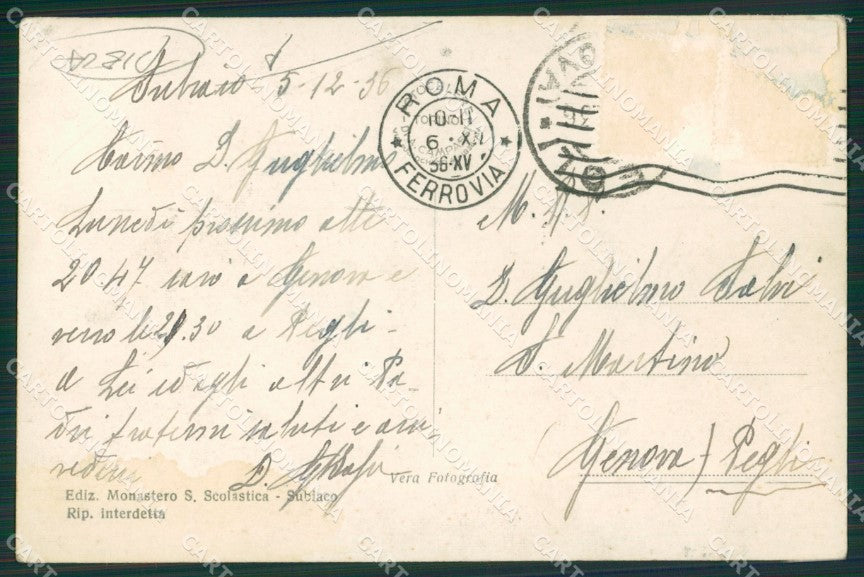 Subiaco 5-12-36
Carmo D. Guglielmo
Lunedì prossimo alle
20.47 sarò a Genova e
verso le 21.30 a Pegli -
A Lei ed agli altri Pa-
dri fraterni saluti e arri-
vederci D.
Vera Fotografia
Ediz. Monastero S. Scolastica - Subiaco
Rip. interdetta
ROMA
10-11
6 · XII
36·XV
FERROVIA
M.
D. Guglielmo Salvi
S. Martino
(Genova) Pegli
CARTOLINOMANIA